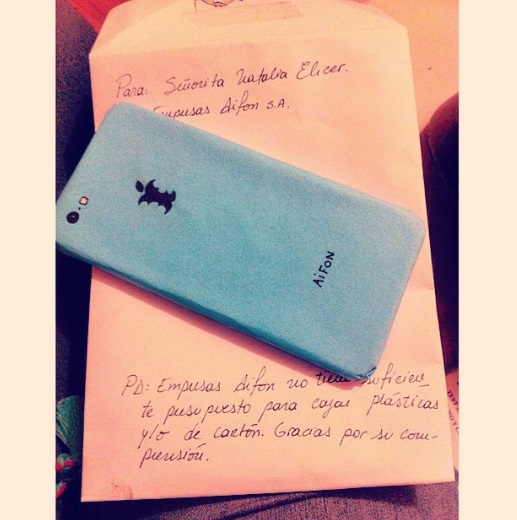 Para: Señorita Natalia Elicer.
Empresas Aifon S.A.
AiFON
PD: Empresas Aifon no tiene suficien_
te presupuesto para cajas plásticas
y/o de cartón. Gracias por su com-
prensión.